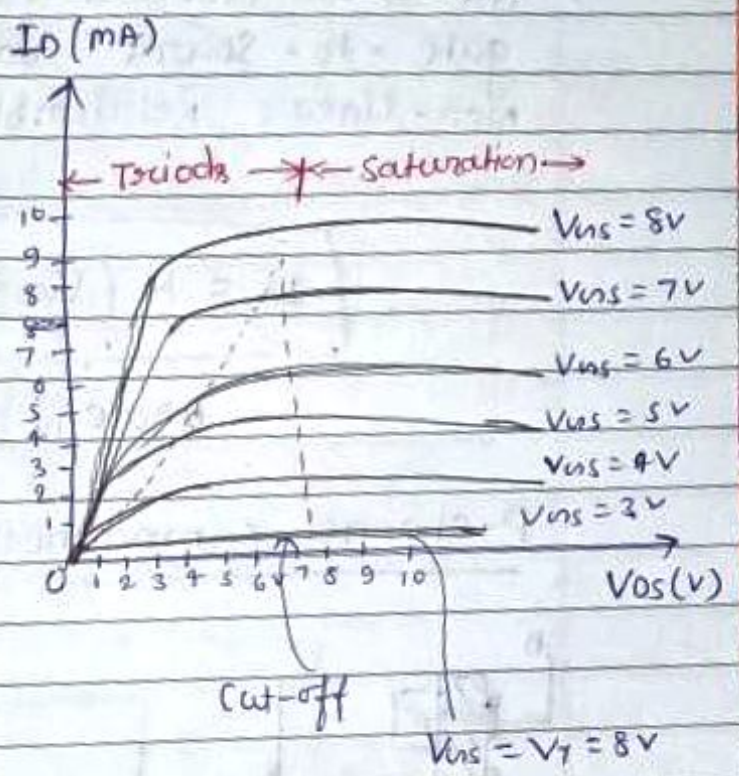 ID (mA)
← Triode → ← Saturation →
10
9
8
7
6
5
4
3
2
1
VGS = 8V
VGS = 7V
VGS = 6V
VGS = 5V
VGS = 4V
VGS = 3V
0 1 2 3 4 5 6 7 8 9 10
VDS (V)
Cut-off
VGS = VT = 8V